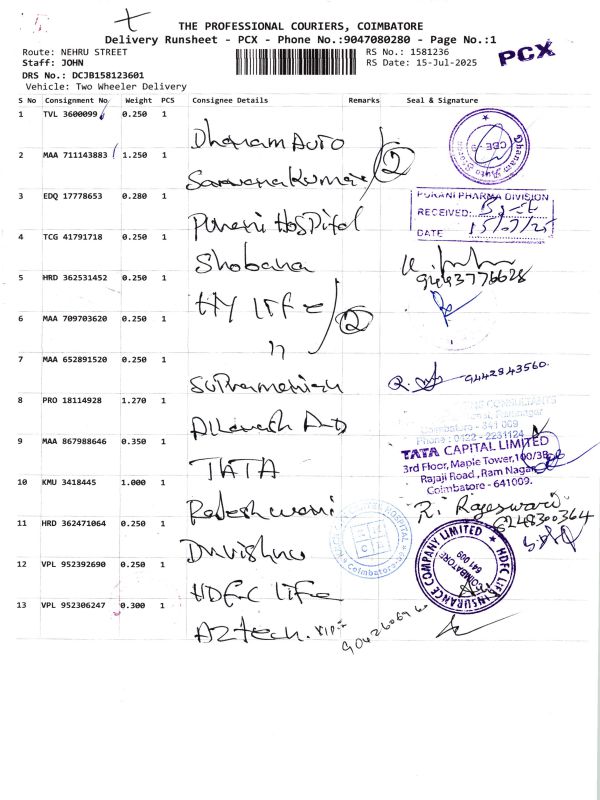 THE PROFESSIONAL COURIERS, COIMBATORE
Delivery Runsheet - PCX - Phone No.:9047080280 - Page No.:1
Route: NEHRU STREET
RS No.: 1581236
PCX
Staff: JOHN
RS Date: 15-Jul-2025
DRS No.: DCJB158123601
Vehicle: Two Wheeler Delivery
S No Consignment No Weight PCS Consignee Details Remarks Seal & Signature
1 TVL 3600099 0.250 1 Dhanam Auto
2 MAA 711143883 1.250 1 Saravanakumar 2
3 EDQ 17778653 0.280 1 Purani Hospital
PURANI PHARMA DIVISION
RECEIVED:
DATE 15/07/25
4 TCG 41791718 0.250 1 Shobana
9443776628
5 HRD 362531452 0.250 1 HY Life
6 MAA 709703620 0.250 1 " 2
7 MAA 652891520 0.250 1
9442843560
8 PRO 18114928 1.270 1
Coimbatore - 641 009
Phone : 0422 - 2231124
9 MAA 867988646 0.350 1 TATA
TATA CAPITAL LIMITED
3rd Floor, Maple Tower, 100/3B,
Rajaji Road, Ram Nagar,
Coimbatore - 641009.
10 KMU 3418445 1.000 1
R. Rajeswari
6248300364
11 HRD 362471064 0.250 1 Duvishnu
12 VPL 952392690 0.250 1 HDFC Life
HDFC LIFE INSURANCE COMPANY LIMITED
COIMBATORE
641 009
13 VPL 952306247 0.300 1 Aztech